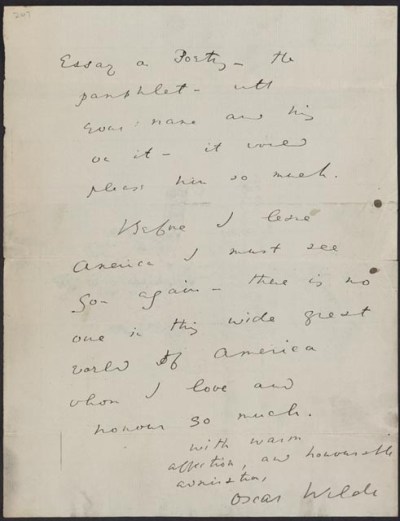 247
Essay on Poetry – the
pamphlet – with
your name and his
on it – it would
please him so much.
Before I leave
America I must see
you again – there is no
one in this wide great
world of America
whom I love and
honour so much.
with warm
affection, and honourable
admiration,
Oscar Wilde